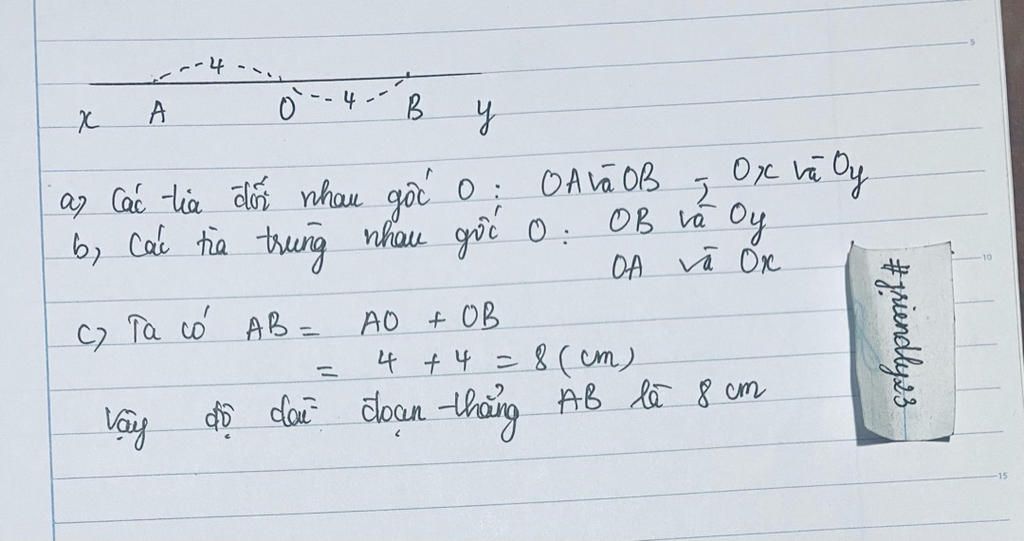 4
4
x A O B y
a) Các tia đối nhau gốc O : OA và OB ; Ox và Oy
b, Các tia trùng nhau gốc O : OB và Oy
OA và Ox
c) Ta có AB = AO + OB
= 4 + 4 = 8 (cm)
Vậy độ dài đoạn thẳng AB là 8 cm
#friendly23
5
10
15